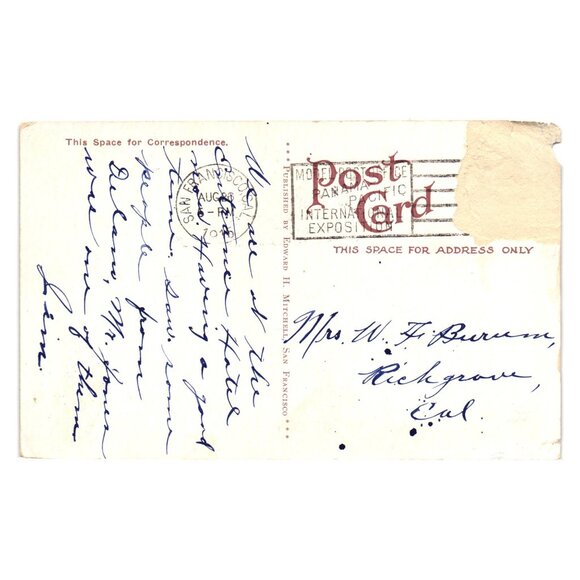 This Space for Correspondence.
We are at the
Hotel
now. Having a good
time. Saw some
people from
Delano, Mr. Jones
was one of them.
Jim.
PUBLISHED BY EDWARD H. MITCHELL, SAN FRANCISCO
SAN FRANCISCO, CAL.
AUG
1915
MODEL POST OFFICE
PANAMA PACIFIC
INTERNATIONAL
EXPOSITION
Post Card
THIS SPACE FOR ADDRESS ONLY
Mrs. W. F. Burum,
Richgrove,
Cal.